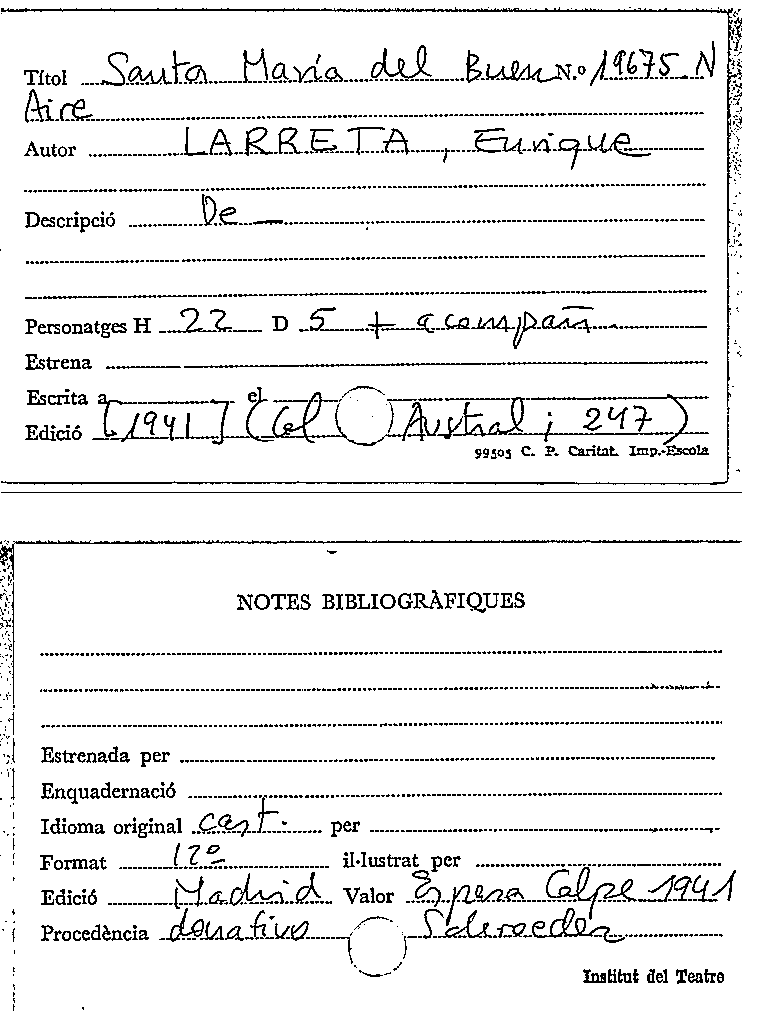 Títol Santa María del Buen N.º 19675 N
Aire
Autor LARRETA, Enrique
Descripció De —
Personatges H 22 D 5 + acompañ.
Estrena
Escrita a el
Edició [1941] (Col Austral; 247)
99505 C. P. Caritat. Imp.-Escola
NOTES BIBLIOGRÀFIQUES
Estrenada per
Enquadernació
Idioma original cast. per
Format 12º il·lustrat per
Edició Madrid Valor Espasa Calpe 1941
Procedència donativo Schroeder
Institut del Teatre